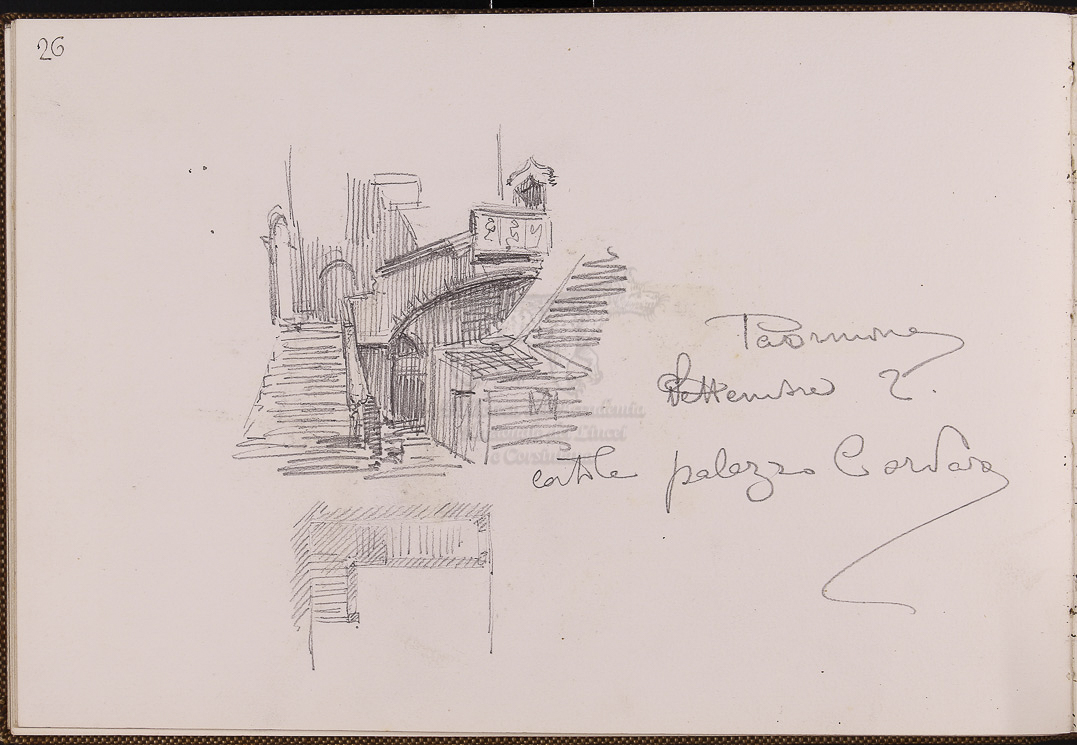 26
Taormina
Settembre 2.
cortile palazzo Corvaia